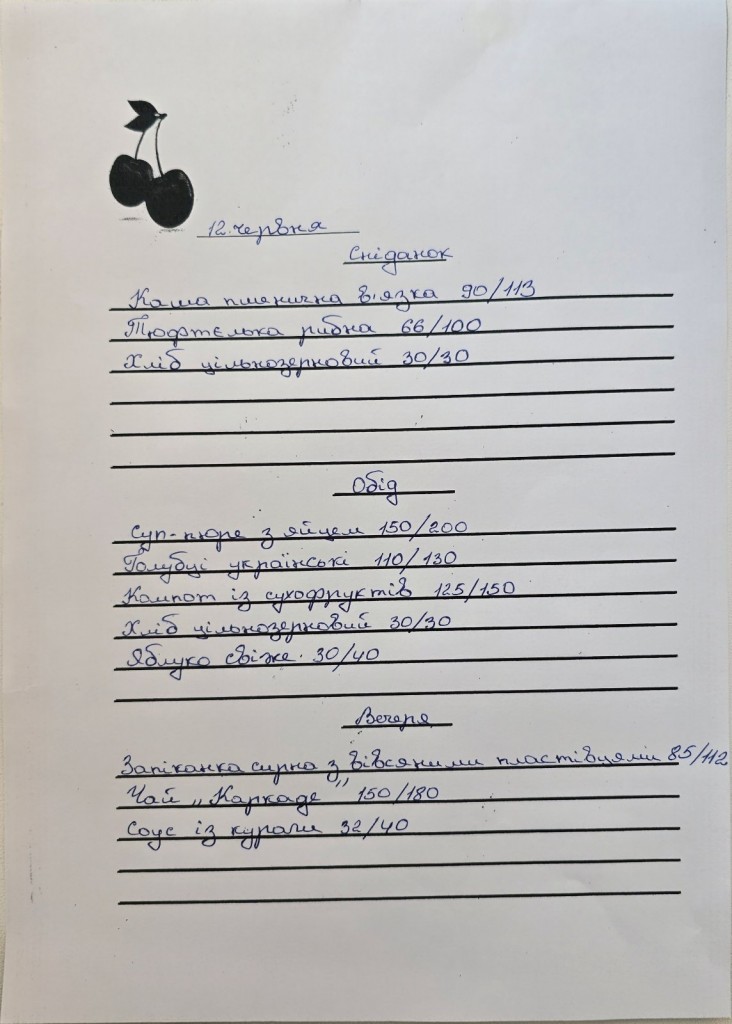 12.червня
Сніданок
Каша пшенична в'язка 90/113
Тюфтєлька рибна 66/100
Хліб цільнозерновий 30/30
Обід
Суп-пюре з яйцем 150/200
Голубці українські 110/130
Компот із сухофруктів 125/150
Хліб цільнозерновий 30/30
Яблуко свіже. 30/40
Вечеря
Запіканка сирна з вівсяними пластівцями 85/112
Чай „Каркаде" 150/180
Соус із кураги 32/40